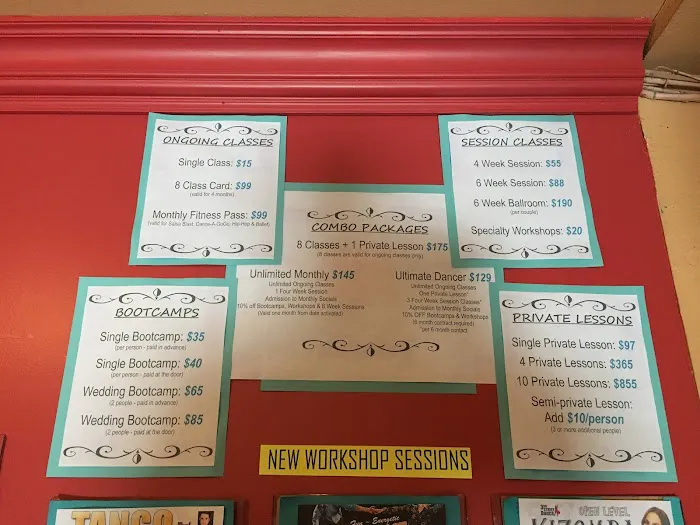 ONGOING CLASSES
Single Class: $15
8 Class Card: $99
(valid for 4 months)
Monthly Fitness Pass: $99
(valid for Salsa Blast, Dance-A-GoGo, Hip-Hop & Ballet)
SESSION CLASSES
4 Week Session: $55
6 Week Session: $88
6 Week Ballroom: $190
(per couple)
Specialty Workshops: $20
COMBO PACKAGES
8 Classes + 1 Private Lesson $175
(8 classes are valid for ongoing classes only)
Unlimited Monthly $145
Unlimited Ongoing Classes
1 Four Week Session
Admission to Monthly Socials
10% off Bootcamps, Workshops & 6 Week Sessions
(Valid one month from date activated)
Ultimate Dancer $129
Unlimited Ongoing Classes
One Private Lesson*
3 Four Week Session Classes*
Admission to Monthly Socials
10% OFF Bootcamps & Workshops
(6 month contract required)
*per 6 month contact
BOOTCAMPS
Single Bootcamp: $35
(per person - paid in advance)
Single Bootcamp: $40
(per person - paid at the door)
Wedding Bootcamp: $65
(2 people - paid in advance)
Wedding Bootcamp: $85
(2 people - paid at the door)
PRIVATE LESSONS
Single Private Lesson: $97
4 Private Lessons: $365
10 Private Lessons: $855
Semi-private Lesson:
Add $10/person
(3 or more additional people)
NEW WORKSHOP SESSIONS
TANGO
Fun - Energetic
OPEN LEVEL
KIZOMBA